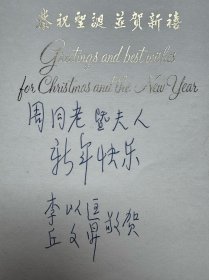 恭祝聖誕 並賀新禧
Greetings and best wishes
for Christmas and the New Year
周同老暨夫人
新年快乐
李以匡
丘文昇 敬贺